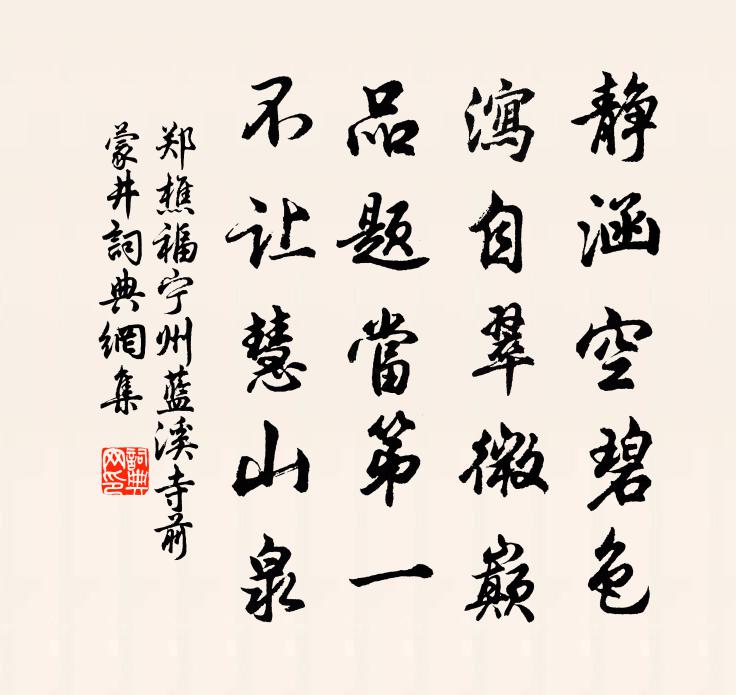 静涵空碧色
瀉自翠微巔
品题當第一
不让慧山泉
郑樵福宁州蓝溪寺前
蒙井詞典網集
詞典网印